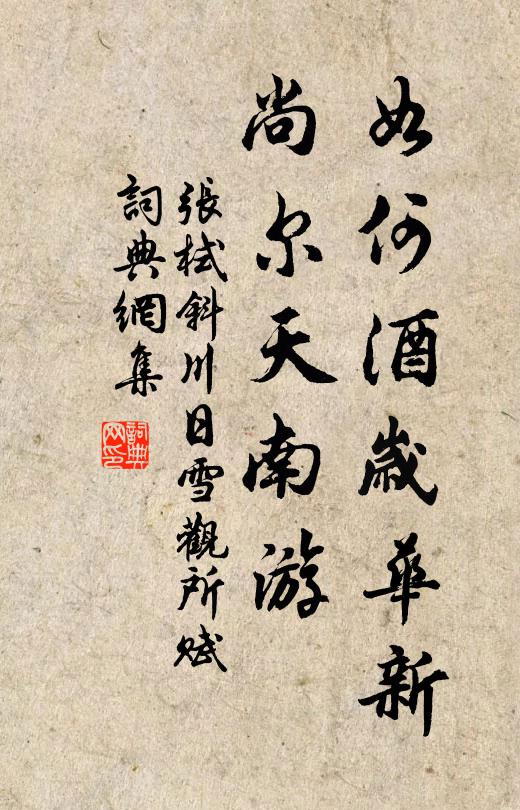 如何酒歲華新
尚尔天南游
張栻斜川日雪觀所赋
詞典網集
詞典网印